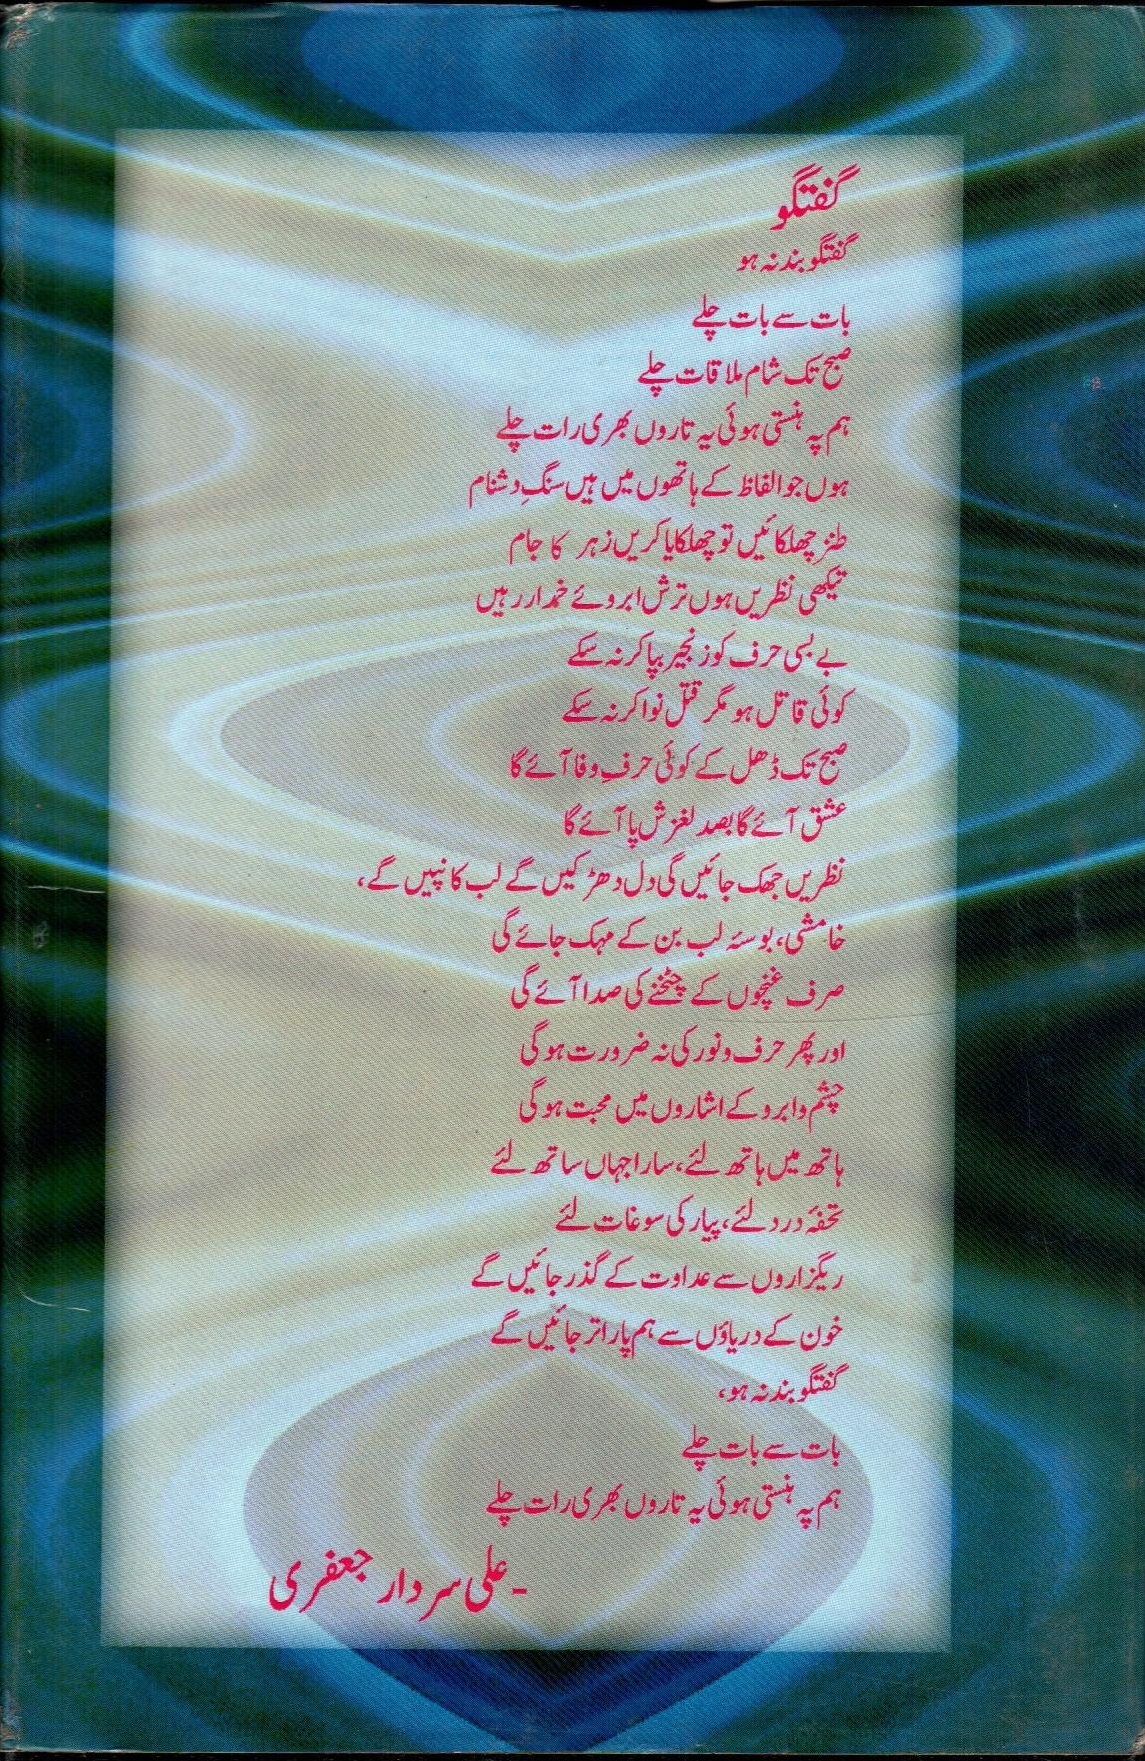 گفتگو
گفتگو بند نہ ہو
بات سے بات چلے
صبح تک شام ملاقات چلے
ہم پہ ہنستی ہوئی یہ تاروں بھری رات چلے
ہوں جو الفاظ کے ہاتھوں میں ہیں سنگِ دشنام
طنز چھلکائیں تو چھلکایا کریں زہر کا جام
تیکھی نظریں ہوں ترش ابروئے خمدار رہیں
بے بسی حرف کو زنجیر بپا کر نہ سکے
کوئی قاتل ہو مگر قتل نوا کر نہ سکے
صبح تک ڈھل کے کوئی حرفِ وفا آئے گا
عشق آئے گا بصد لغزش پا آئے گا
نظریں جھک جائیں گی دل دھڑکیں گے لب کانپیں گے،
خامشی، بوسۂ لب بن کے مہک جائے گی
صرف غنچوں کے چٹخنے کی صدا آئے گی
اور پھر حرف و نور کی نہ ضرورت ہوگی
چشم و ابرو کے اشاروں میں محبت ہوگی
ہاتھ میں ہاتھ لئے، سارا جہاں ساتھ لئے
تحفۂ درد لئے، پیار کی سوغات لئے
ریگزاروں سے عداوت کے گذر جائیں گے
خون کے دریاؤں سے ہم پار اتر جائیں گے
گفتگو بند نہ ہو،
بات سے بات چلے
ہم پہ ہنستی ہوئی یہ تاروں بھری رات چلے
- علی سردار جعفری